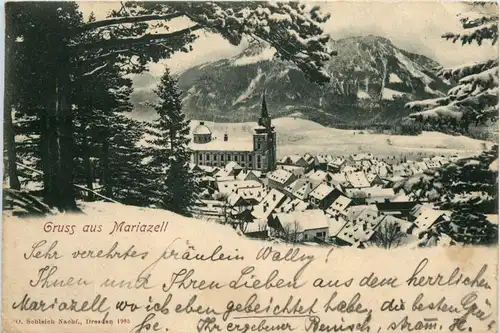 Gruss aus Mariazell.
Sehr verehrtes Fräulein Wally!
Ihnen und Ihren Lieben aus dem herrlichen
Mariazell, wo ich eben gebeichtet habe, die besten Grü-
sse. Ihr ergebener
O. Schleich Nachf., Dresden 1905